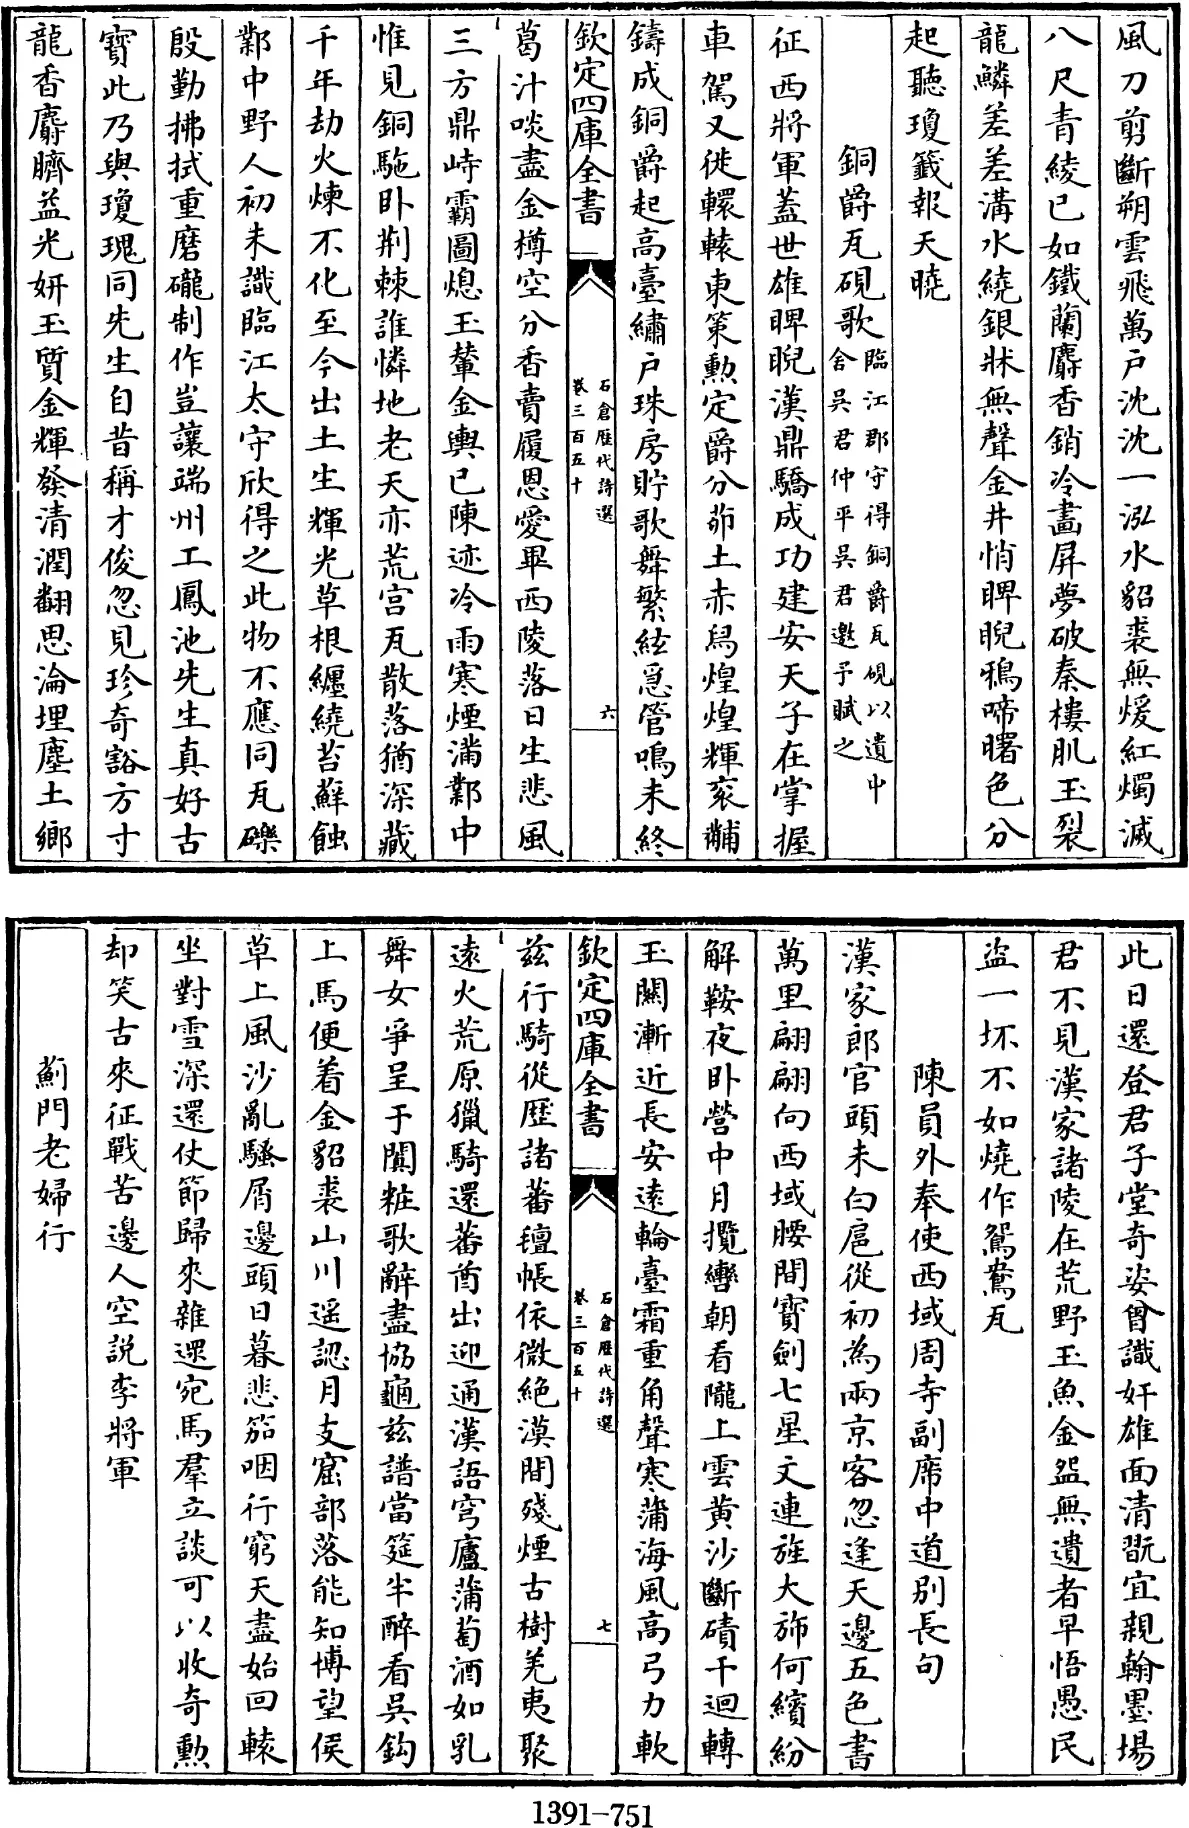 風刀剪斷朔雲飛萬戶沈沈一泓水貂裘無煖紅燭滅
八尺青綾已如鐵蘭麝香銷冷畫屏夢破秦樓肌玉裂
龍鱗差差溝水繞銀牀無聲金井悄睥睨鴉啼曙色分
起聽瓊籤報天曉
銅爵瓦硯歌臨江郡守得銅爵瓦硯以遺中
舍吳君仲平吳君邀予賦之
征西將軍蓋世雄睥睨漢鼎驕成功建安天子在掌握
車駕又徙轘轅東策勲定爵分茆土赤舄煌煌輝衮黼
鑄成銅爵起高臺繡戶珠房貯歌舞繁絃急管鳴未終
欽定四庫全書
石倉歴代詩選
卷三百五十
六
葛汁啖盡金樽空分香賣履恩愛畢西陵落日生悲風
三方鼎峙霸圖熄玉輦金輿已陳迹冷雨寒煙滿鄴中
惟見銅駞卧荆棘誰憐地老天亦荒宫瓦散落猶深藏
千年劫火煉不化至今出土生輝光草根纒繞苔蘚蝕
鄴中野人初未識臨江太守欣得之此物不應同瓦礫
殷勤拂拭重磨礲制作豈讓端州工鳳池先生真好古
寳此乃與瓊瑰同先生自昔稱才俊忽見珍奇豁方寸
龍香麝臍益光妍玉質金輝發清潤翻思淪埋塵土鄉
此日還登君子堂奇姿曾識奸雄面清翫宜親翰墨場
君不見漢家諸陵在荒野玉魚金盌無遺者早悟愚民
盗一坏不如燒作鴛鴦瓦
陳員外奉使西域周寺副席中道别長句
漢家郎官頭未白扈從初為兩京客忽逢天邊五色書
萬里翩翩向西域腰間寳劍七星文連旌大斾何繽紛
解鞍夜卧營中月攬轡朝看隴上雲黄沙斷磧千迴轉
玉關漸近長安遠輪臺霜重角聲寒蒲海風高弓力軟
欽定四庫全書
石倉歴代詩選
卷三百五十
七
兹行騎從歴諸蕃氊帳依微絶漠間殘煙古樹羌夷聚
遠火荒原獵騎還蕃酋出迎通漢語穹廬蒲萄酒如乳
舞女爭呈于闐粧歌辭盡協龜兹譜當筵半醉看吳鈎
上馬便着金貂裘山川遥認月支窟部落能知博望侯
草上風沙亂騷屑邊頭日暮悲笳咽行窮天盡始回轅
坐對雪深還仗節歸來雜遝宛馬羣立談可以收奇勲
却笑古來征戰苦邊人空説李將軍
薊門老婦行
1391-751